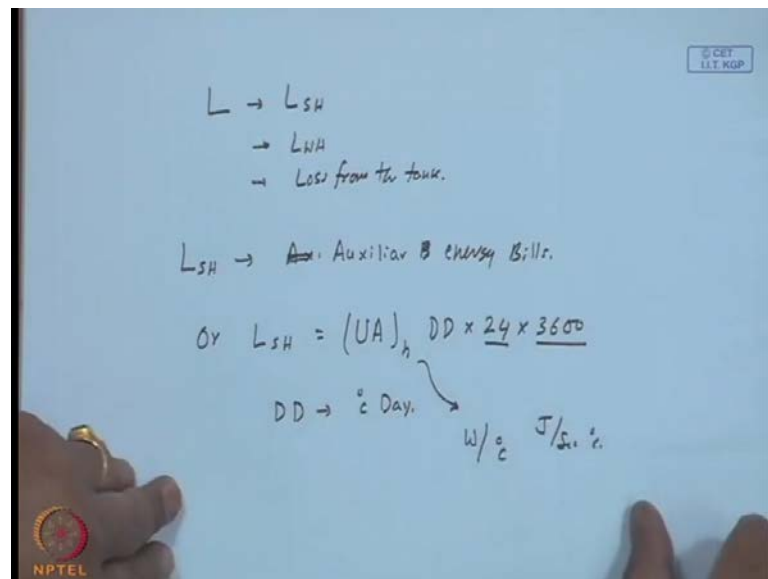 © CET
I.I.T. KGP
L → L_SH
→ L_WH
→ Loss from the tank.
L_SH → Auxiliar B energy Bills.
Or L_SH = (UA)_h DD × 24 × 3600
DD → °C Day.
W/°C J/Sec °C.
NPTEL